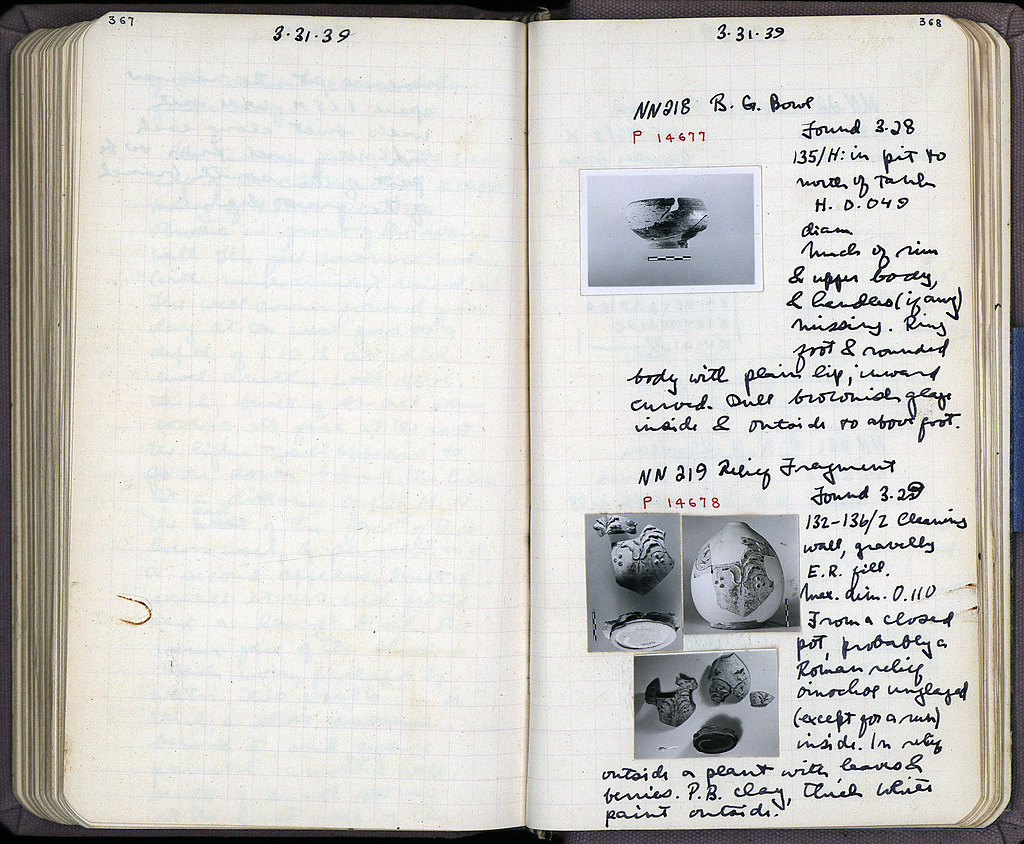 367
3·31·39
368
3·31·39
NN218 B. G. Bowl
P 14677
Found 3·28
135/H: in pit to
north of
H. 0.049
diam
Much of rim
& upper body,
& handles (if any)
missing. Ring
foot & rounded
body with plain lip, inward
curved. Dull brownish glaze
inside & outside to above foot.
NN 219 Relief Fragment
P 14678
Found 3·29
132-136/Z Cleaning
wall, gravelly
E.R. fill.
Max. dim. 0.110
From a closed
pot, probably a
Roman relief
oinochoe unglazed
(except for a run)
inside. In relief
outside a plant with leaves &
berries. P.B. clay, thick white
paint outside.